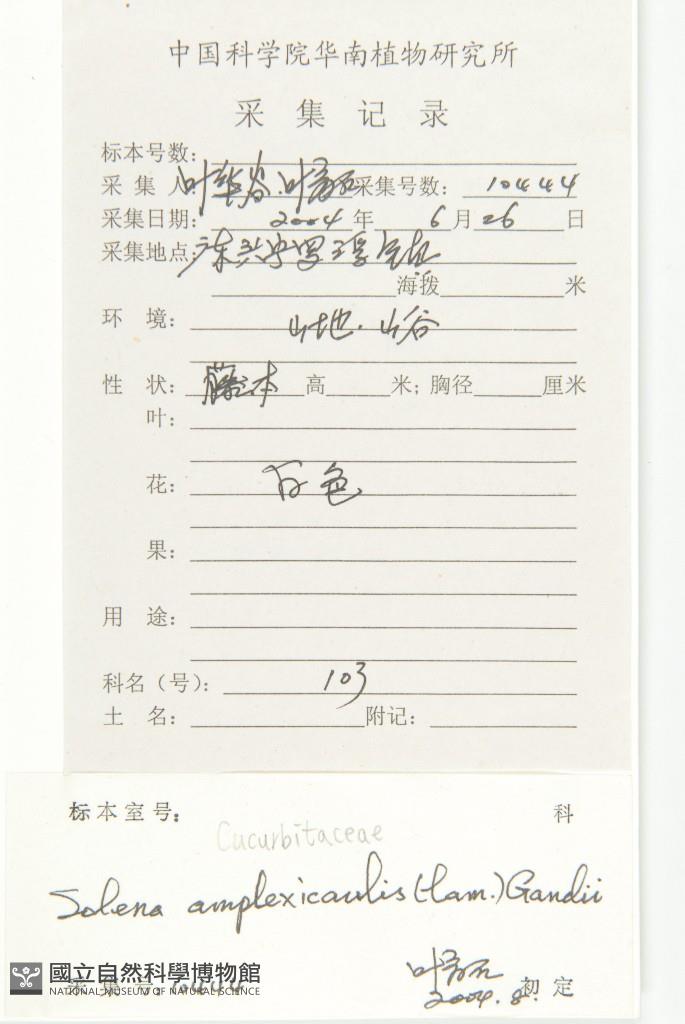 中国科学院华南植物研究所
采集记录
标本号数:
采集人: 叶华谷. 叶 采集号数: 10444
采集日期: 2004 年 6 月 26 日
采集地点: 广东兴宁罗浮
海拨 米
环境: 山地. 山谷
性状: 藤本 高 米; 胸径 厘米
叶:
花: 白色
果:
用途:
科名(号): 103
土名: 附记:
标本室号: 科
Cucurbitaceae
Solena amplexicaulis (Lam.) Gandii
叶 初定
2004.8.
國立自然科學博物館
NATIONAL MUSEUM OF NATURAL SCIENCE